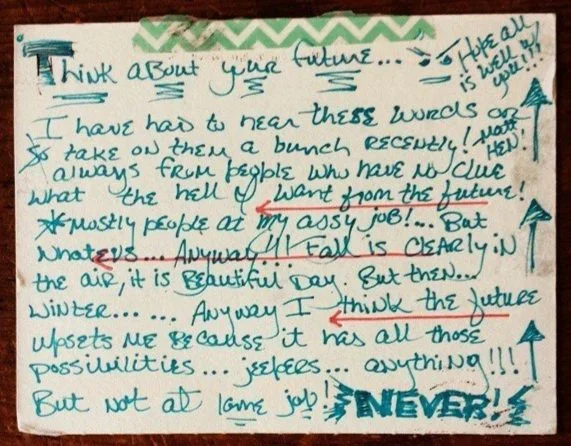 Think about your future...
Hope all
is well w/
you!!!
I have had to hear these words or
take on them a bunch recently!
Matt
HEN!
always from people who have no clue
what the hell I want from the future!
*Mostly people at my assy job!... But
whatevs... Anyway!!! Fall is CLEARLY in
the air, it is Beautiful Day. But then...
winter...... Anyway I think the future
upsets me because it has all those
possibilities... jeepers... anything!!!
But not at lame job! NEVER!